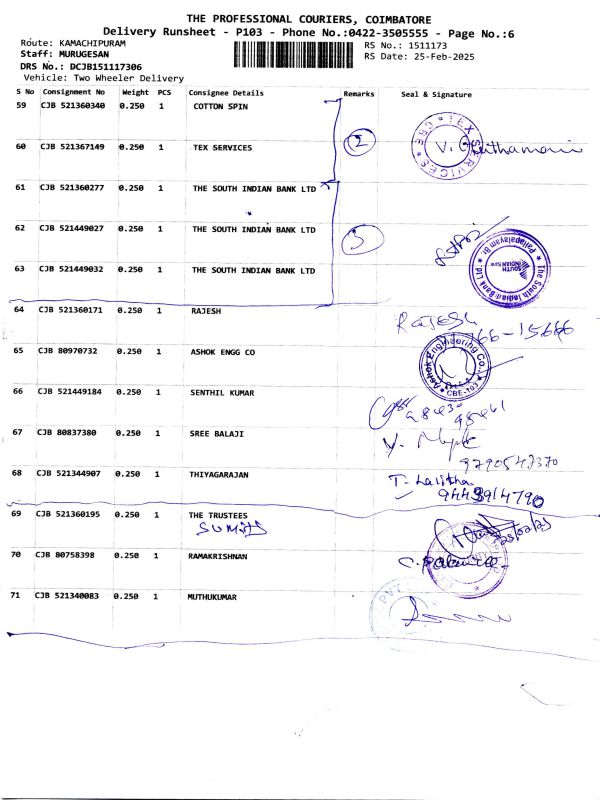 THE PROFESSIONAL COURIERS, COIMBATORE
Delivery Runsheet - P103 - Phone No.:0422-3505555 - Page No.:6
Route: KAMACHIPURAM
Staff: MURUGESAN
DRS No.: DCJB151117306
Vehicle: Two Wheeler Delivery
RS No.: 1511173
RS Date: 25-Feb-2025
S No Consignment No Weight PCS Consignee Details Remarks Seal & Signature
59 CJB 521360340 0.250 1 COTTON SPIN
60 CJB 521367149 0.250 1 TEX SERVICES 2 V.
TEX SERVICES * CBE *
61 CJB 521360277 0.250 1 THE SOUTH INDIAN BANK LTD
62 CJB 521449027 0.250 1 THE SOUTH INDIAN BANK LTD 3
63 CJB 521449032 0.250 1 THE SOUTH INDIAN BANK LTD
The South Indian Bank Ltd
SOUTH INDIAN Bank
64 CJB 521360171 0.250 1 RAJESH RAJESH
66-15666
65 CJB 80970732 0.250 1 ASHOK ENGG CO
Ashok Engineering Co.,
CBE-103
66 CJB 521449184 0.250 1 SENTHIL KUMAR
67 CJB 80837380 0.250 1 SREE BALAJI
9790547370
68 CJB 521344907 0.250 1 THIYAGARAJAN T. Lalitha
9443914790
69 CJB 521360195 0.250 1 THE TRUSTEES
25/02/25
70 CJB 80758398 0.250 1 RAMAKRISHNAN
71 CJB 521340083 0.250 1 MUTHUKUMAR